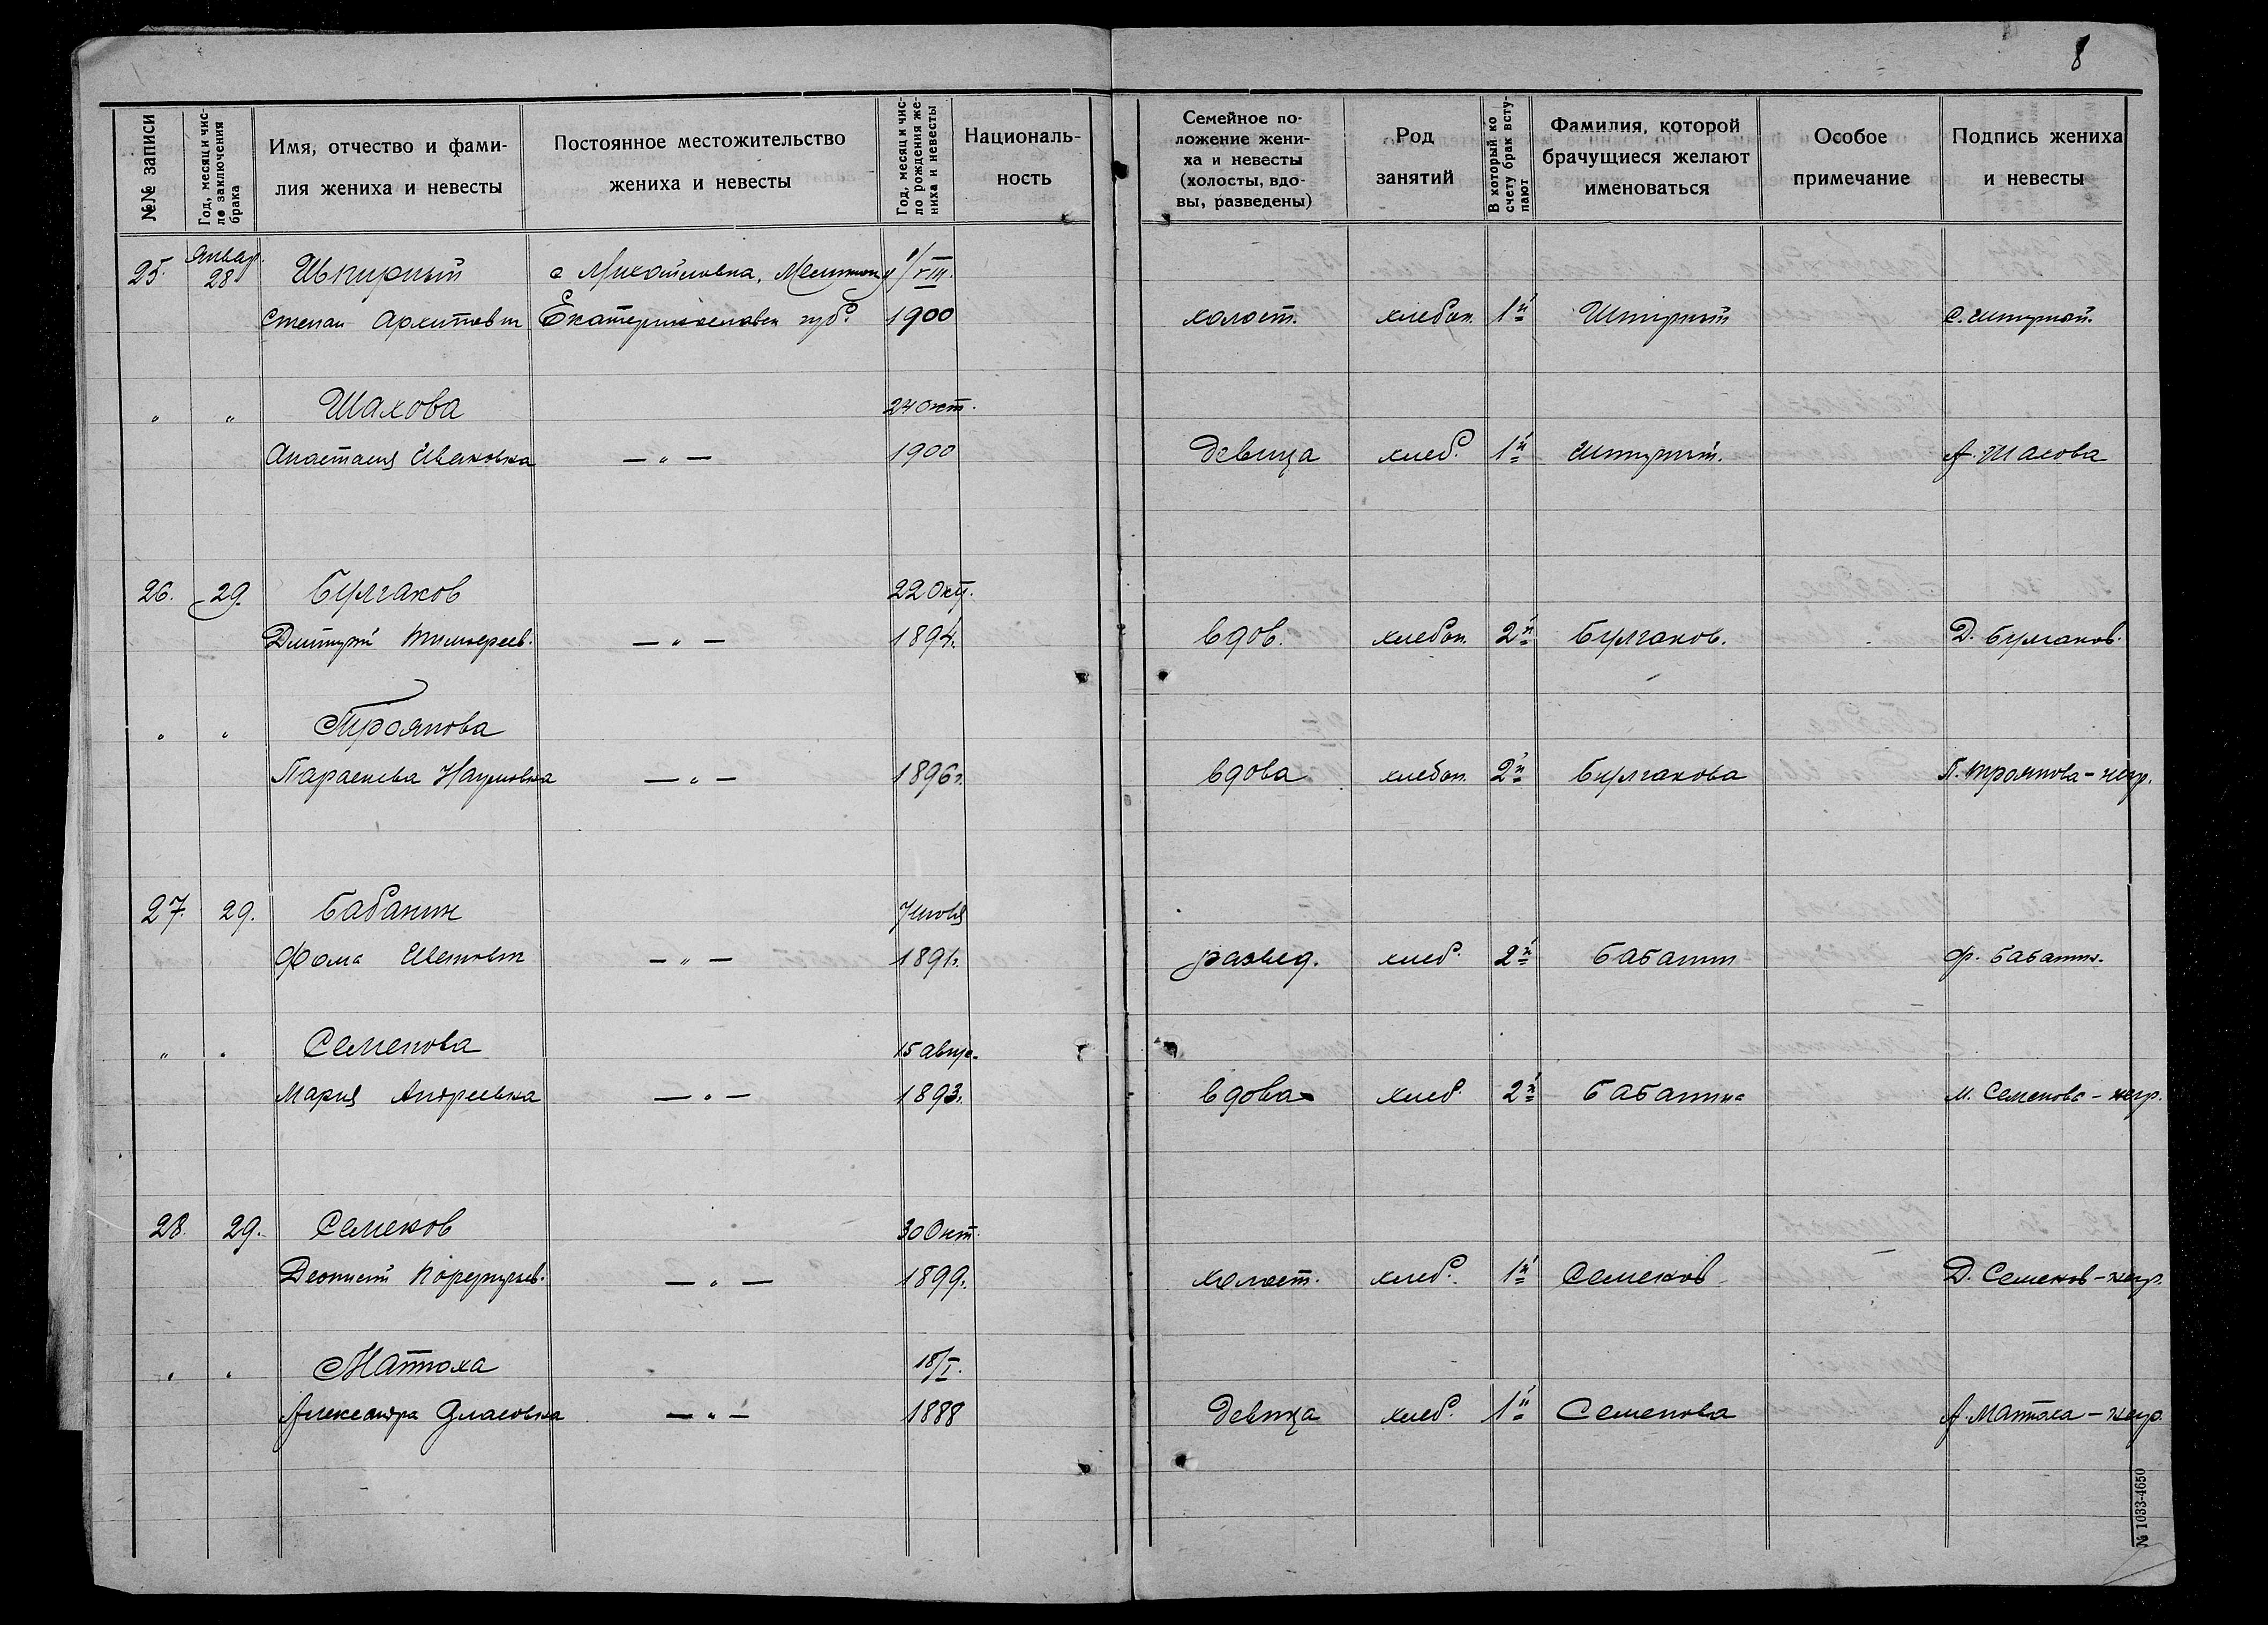 8
№№ записи
Год, месяц и чис-
ло заключения
брака
Имя, отчество и фами-
лия жениха и невесты
Постоянное местожительство
жениха и невесты
Год, месяц и чис-
ло рождения же-
ниха и невесты
Националь-
ность
Семейное по-
ложение жени-
ха и невесты
(холосты, вдо-
вы, разведены)
Род
занятий
В который ко
счету брак всту-
пают
Фамилия, которой
брачущиеся желают
именоваться
Особое
примечание
Подпись жениха
и невесты
25. Январ. 28
с Михайловка, /VIII.
Степан Архипович Екатеринославск губ. 1900 холост. хлебоп. 1й
" " Шахова 24 окт.
Анастасия Ивановка —"— 1900 девица хлеб. 1й А. Шахова
26. 29. Булгаков 22 Окт.
Дмитрий Тимофеев. —"— 1894. вдов. хлебоп. 2й Булгаков. Д. Булгаков.
" " Троянова
Параскева Наумовна —"— 1896г. вдова хлебоп. 2й Булгакова П. Троянова – негр.
27. 29. Бабанин
Фома —"— 1891г. развед. хлеб. 2й Бабанин Ф. Бабанин.
" " Семенова 15 авгус.
Мария Андреевна —"— 1893. вдова хлеб. 2й Бабанина М. Семенова – негр.
28. 29. Семенов 30 Окт.
—"— 1899. холост. хлеб. 1й Семенов Д. Семенов – негр.
" " Матюха 18/I.
Александра Власовна —"— 1888 девица хлеб. 1й Семенова А. Матюха – негр.
№ 1033-4650